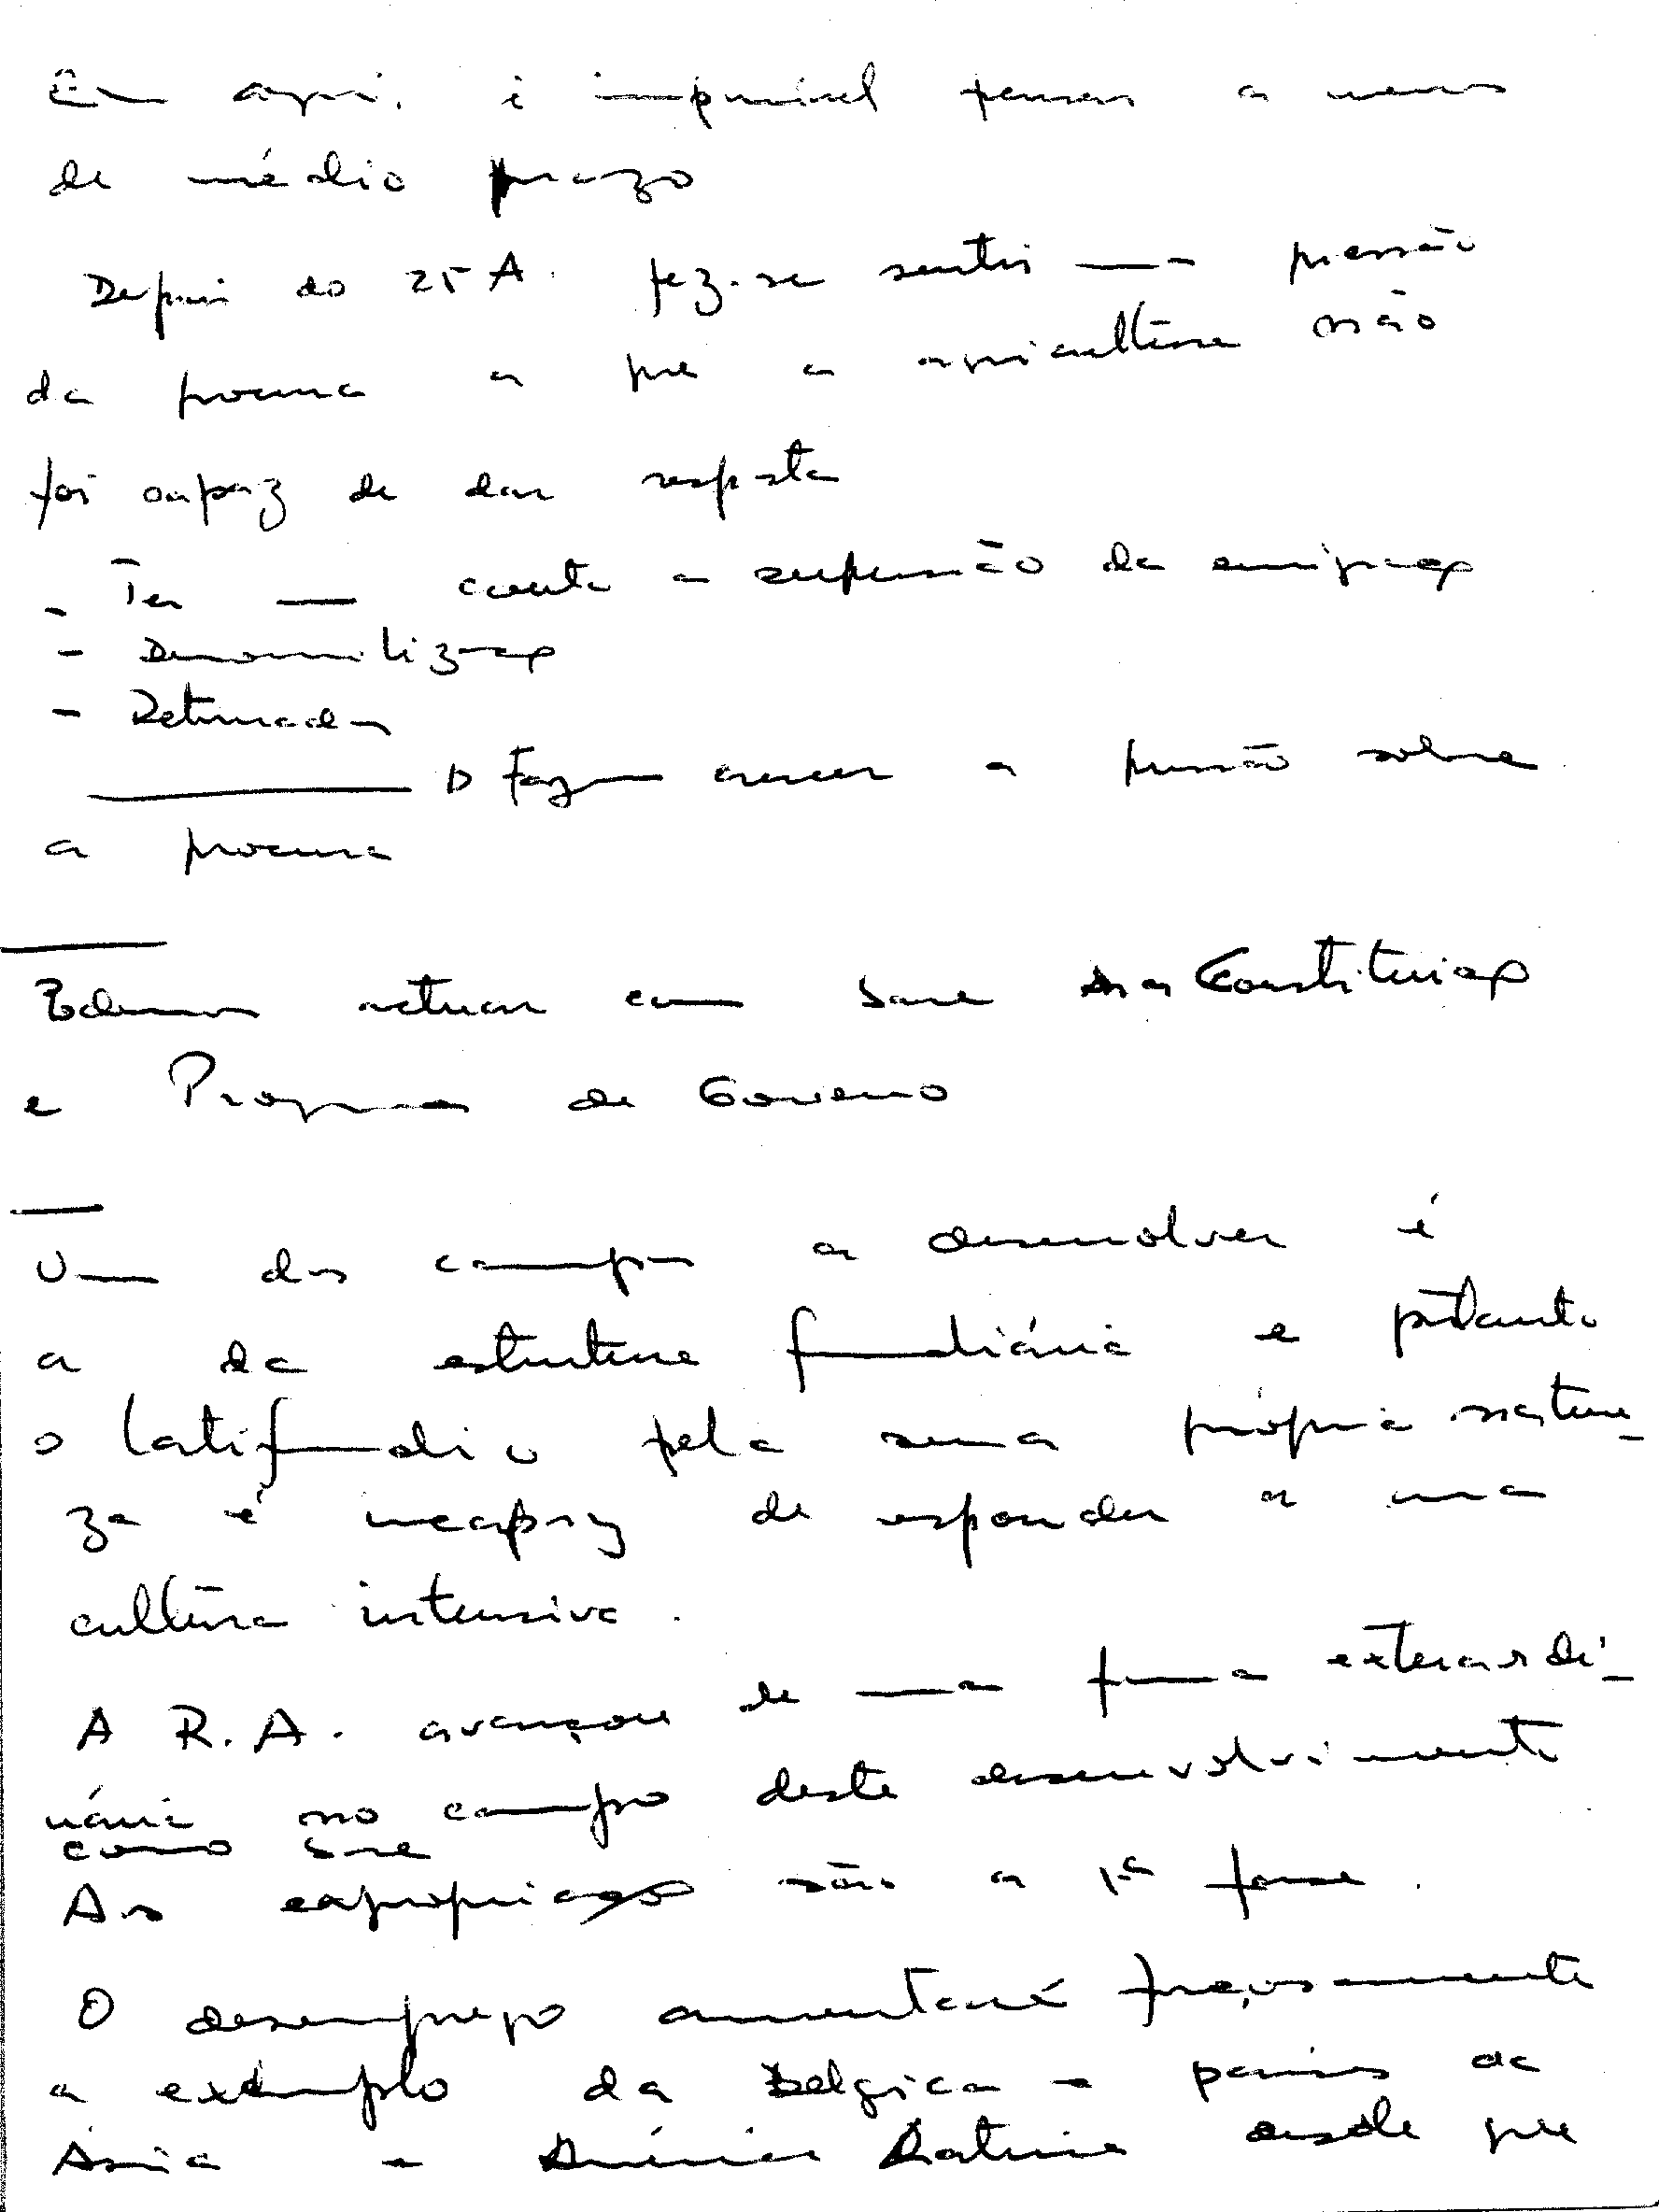 Em agri. é impossível pensar a menos
de médio prazo
Depois do 25 A. fez-se sentir uma pressão
da procura a que a agricultura não
foi capaz de dar resposta
- Ter em conta a suspensão da emigração
- Desmobilização
- Retornados
Fazem crescer a pressão sobre
a procura
Podemos actuar com base na Constituição
e Programa de Governo
Um dos campos a desenvolver é
a da estrutura fundiária e portanto
o latifundio pela sua própria nature-
za é incapaz de responder a uma
cultura intensiva.
A R.A. avançou de uma forma extraordi-
nária no campo deste desenvolvimento
como base
As expropriações são a 1ª fase.
O desemprego aumentará forçosamente
a exemplo da Belgica - países da
Asia - América Latina desde que